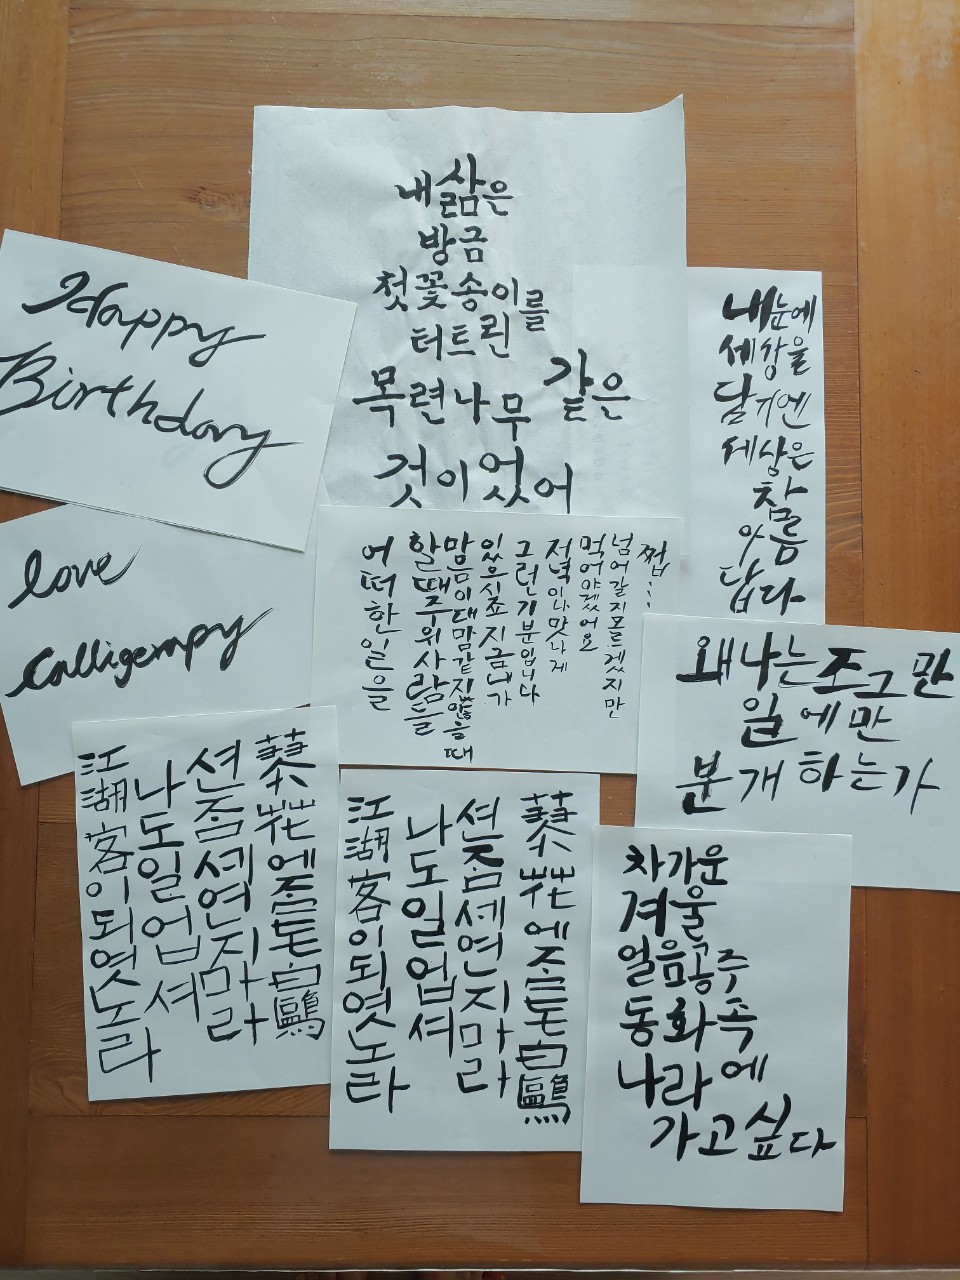 내 삶은
방금
첫 꽃송이를
터트린
목련나무 같은
것이었어
Happy
Birthday
love
Calligerapy
내 눈에
세상을
담기엔
세상은
참
아름
답다
어떠한 일을
할때 주위사람들
맘들이 내맘같지않을때
있으시죠 지금 내가
그런기분입니다
저녁이나 맛나게
먹어야겠어요
넘어갈지모르겠지만
쩝....
왜 나는 조그만
일에만
분개하는가
花에 白鷗
지마라
나도일업셔
江湖客이되엿노라
花에 白鷗
지마라
나도일업셔
江湖客이되엿노라
차가운
겨울
얼음공주
동화속
나라에
가고싶다